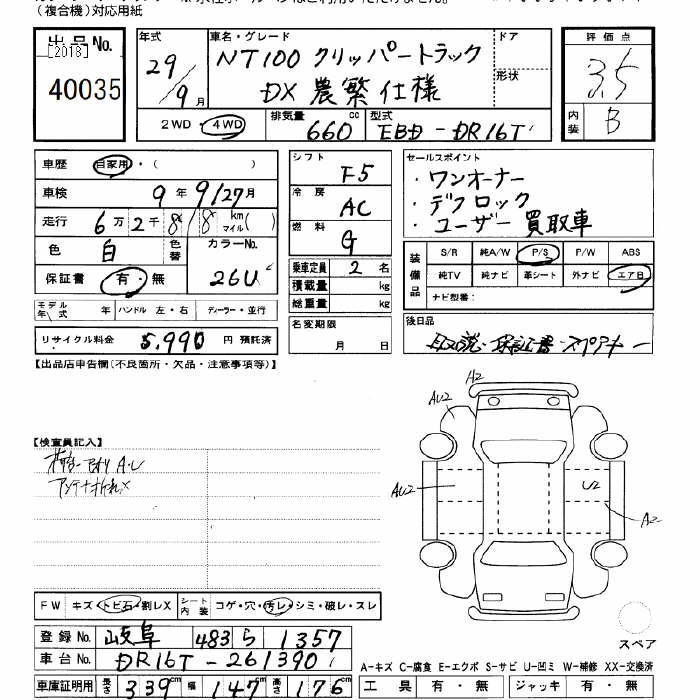 (複合機)対応用紙
出品No.
[2018]
40035
年式
29/9月
車名・グレード
NT100 クリッパートラック
DX 農繁仕様
ドア
形状
評価点
3.5
内装
B
2WD・4WD
排気量
660cc
型式
EBD-DR16T
車歴 自家用・( )
車検 9年9/27月
走行 6万2千 km マイル( )
色 白 色替
カラーNo.
26U
保証書 有・無
モデル年式 年 ハンドル 左・右 ディーラー・並行
リサイクル料金 5,990円 預託済
シフト F5
冷房 AC
燃料 G
乗車定員 2名
積載量 kg
総重量 kg
名変期限
月 日
セールスポイント
・ワンオーナー
・デフロック
・ユーザー買取車
装備品
S/R 純A/W P/S P/W ABS
純TV 純ナビ 革シート 外ナビ エアB
ナビ型番:
後日品
【出品店申告欄(不良箇所・欠品・注意事項等)】
【検査員記入】
A・U
アンテナ折れX
A2
AU2
AU2
U2
A2
FW キズ・トビ石・割レX シート内装 コゲ・穴・汚レ・シミ・破レ・スレ
登録No. 岐阜 483 ら 1357
車台No. DR16T-261390
車庫証明用 長さ 339cm 幅 147cm 高さ 176cm
スペア
A-キズ C-腐食 E-エクボ S-サビ U-凹ミ W-補修 XX-交換済
工具 有・無 ジャッキ 有・無